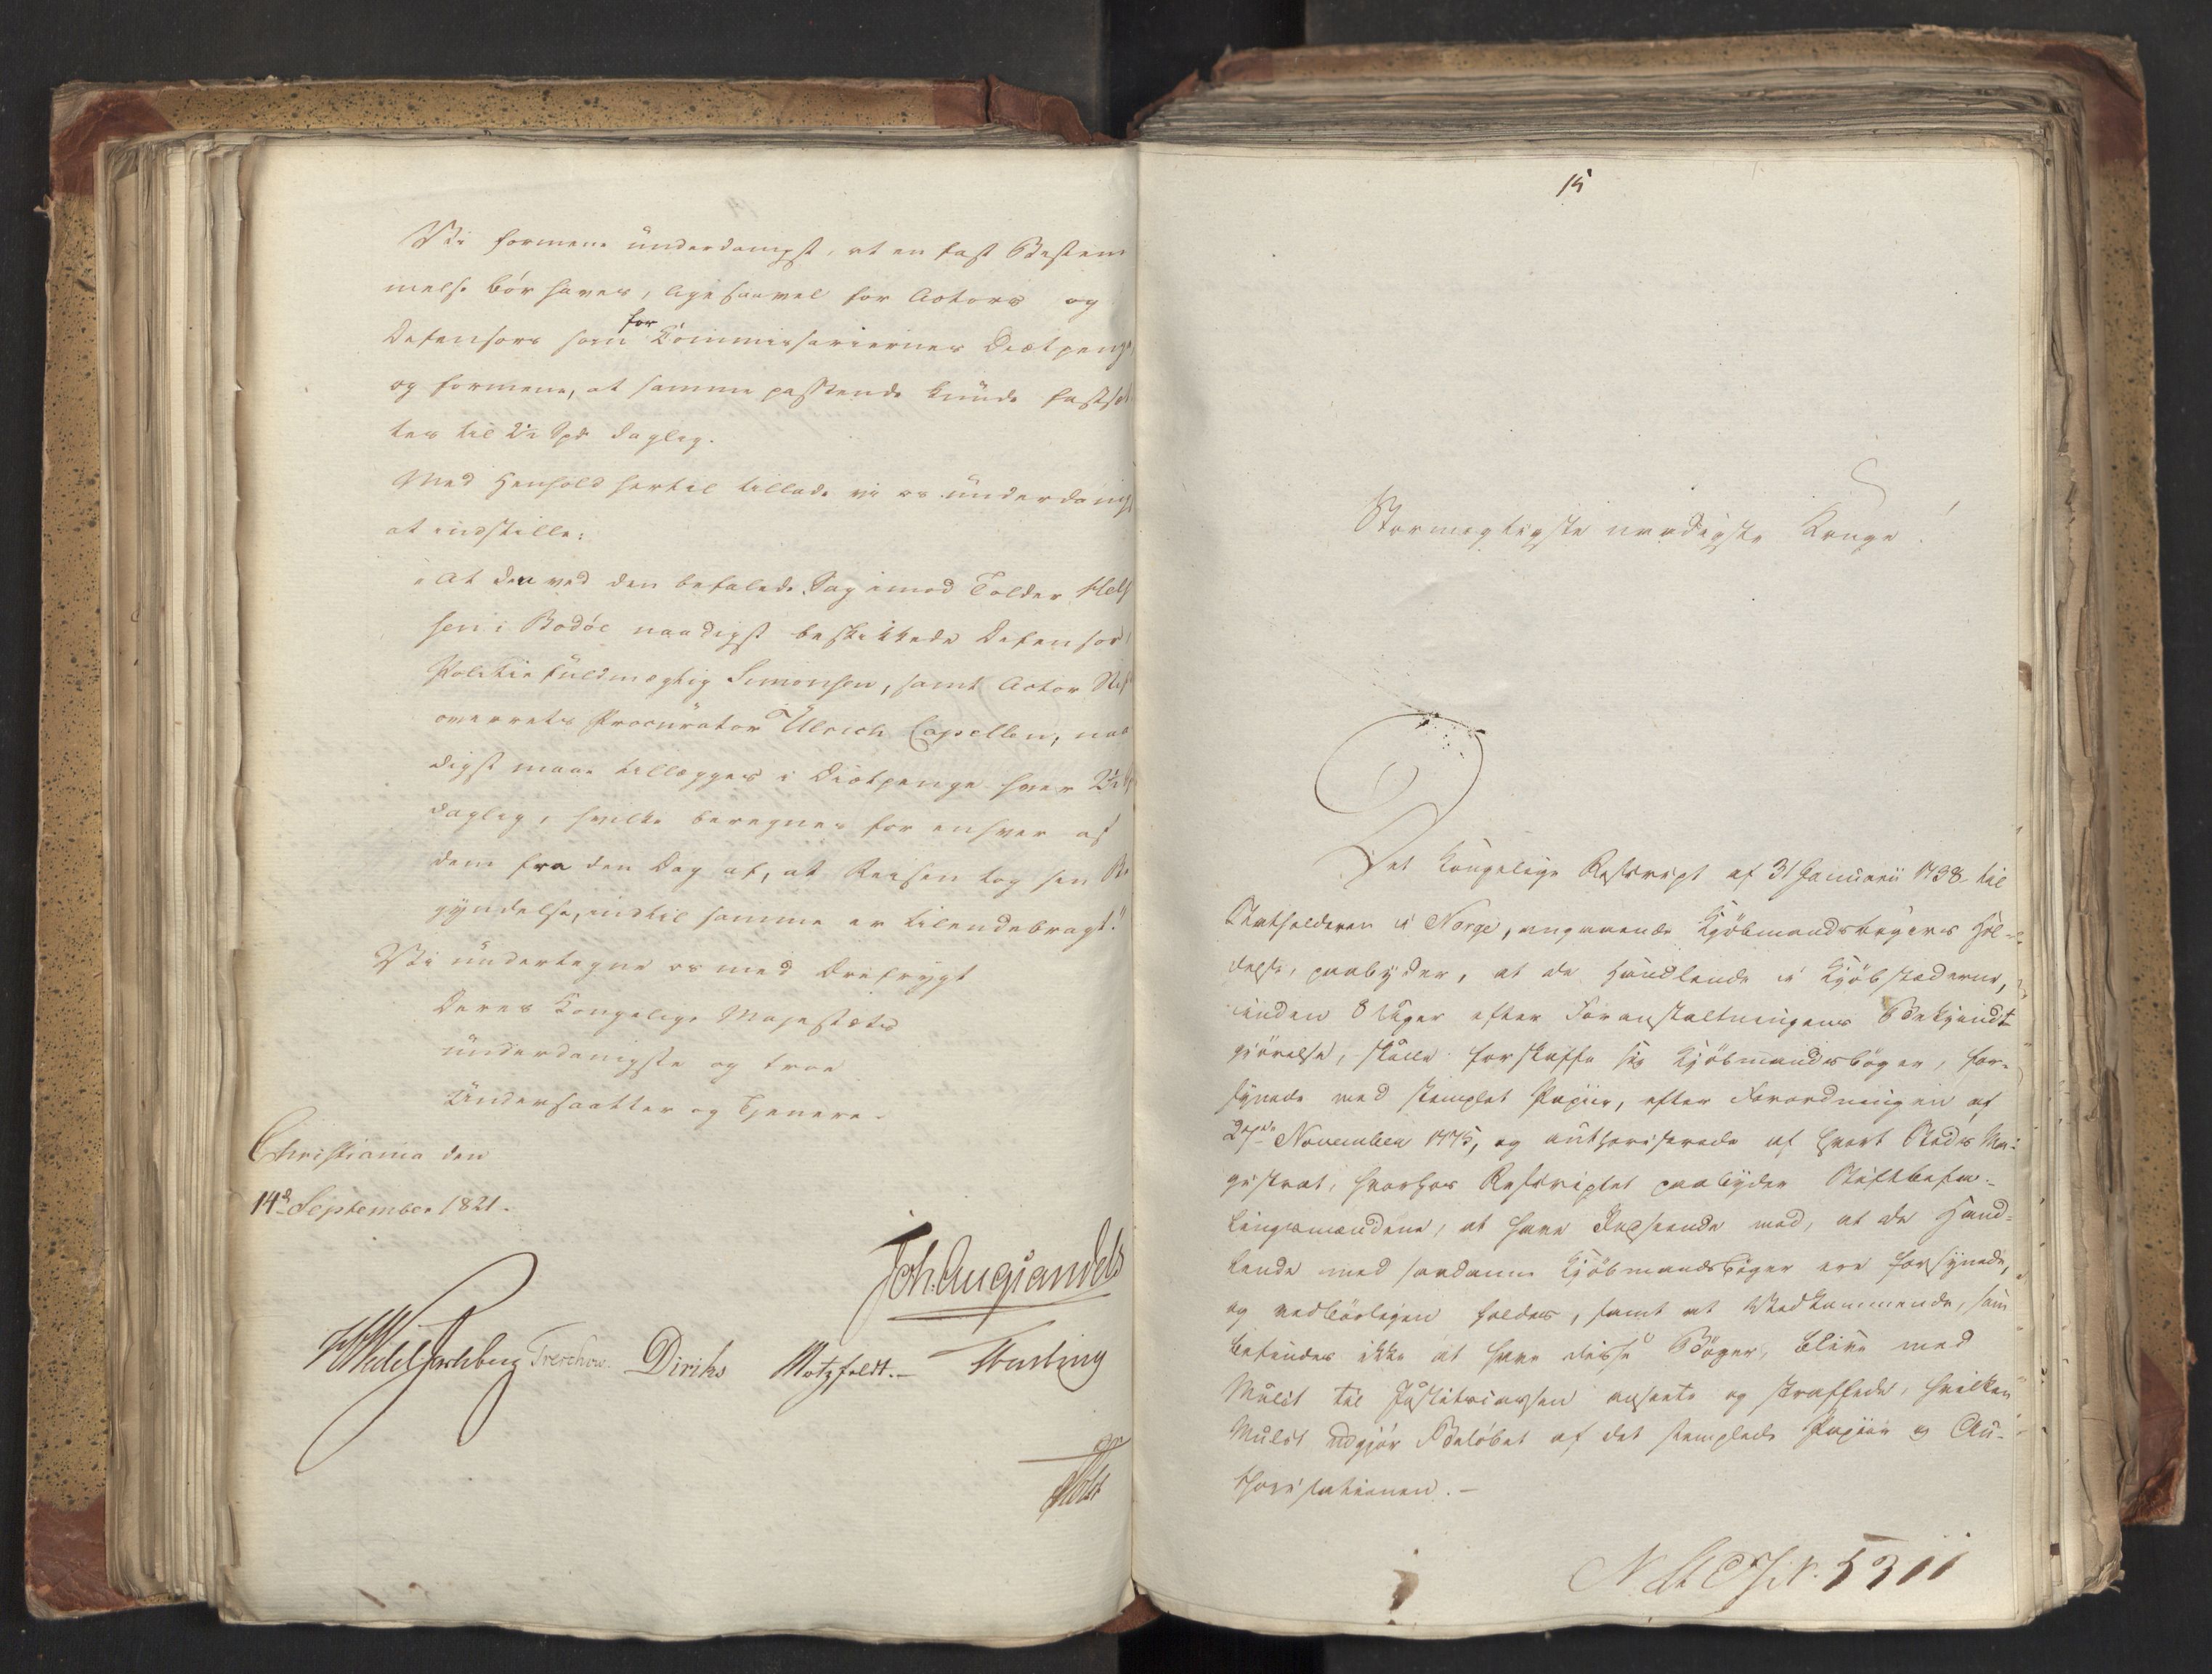 Vi formene underdanigst, at en fast Bestem
melse bør haves, ligesaavel for Actors og
Defensors som for Commissariernes Diætpenge,
og formene, at samme passende kunde fastsæt
tes til 2½ Spd daglig.
Med Henhold hertil tillade vi os underdanigst
at indstille:
"At den ved den befalede Sag imod Tolder
sen i Bodøe naadigst beskikkede Defensor,
Politiefuldmægtig Simonsen, samt Actor
overrets Procurator Ulrich Capellen, naa
digst maae tillægges i Diætpenge hver 2½
daglig, hvilke beregnes for enhver af
dem fra den Dag af, at Reisen tog sin Be
gyndelse, indtil samme er tilendebragt."
Vi undertegne os med Ærefrygt
Deres Kongelige Majestæts
underdanigste og troe
Undersaatter og Tjenere.
Christiania den
14d September 1821.
Joh. Aug. Sandels
HWedel Jarlsberg Treschow. Diriks Motzfeldt.-
Holst
15
Stormægtigste naadigste Konge!
Det Kongelige Rescript af 31 Januarii 1798 til
Statholderen i Norge, angaaende Kjøbmandsbøgers Hol-
delse, paabyder, at de Handlende i Kjøbstæderne,
inden 8 Uger efter Foranstaltningens Bekjendt
gjørelse, skulle forskaffe sig Kjøbmandsbøger, for-
synede med stemplet Papiir, efter Forordningen af
November 1775, og authoriserede af hvert Steds Ma-
gistrat, hvorhos Rescriptet paabyder Stiftbefa-
lingsmændene, at have Indseende med, at de Hand-
lende med saadanne Kjøbmandsbøger ere forsynede,
og vedbørligen holdes, samt at Vedkommende, som
befindes ikke at have disse Bøger, blive med
Mulct til Justitscassen ansete og straffede, hvilken
Mulct udgjør Beløbet af det stemplede Papiir og Au-
thorisationen.-